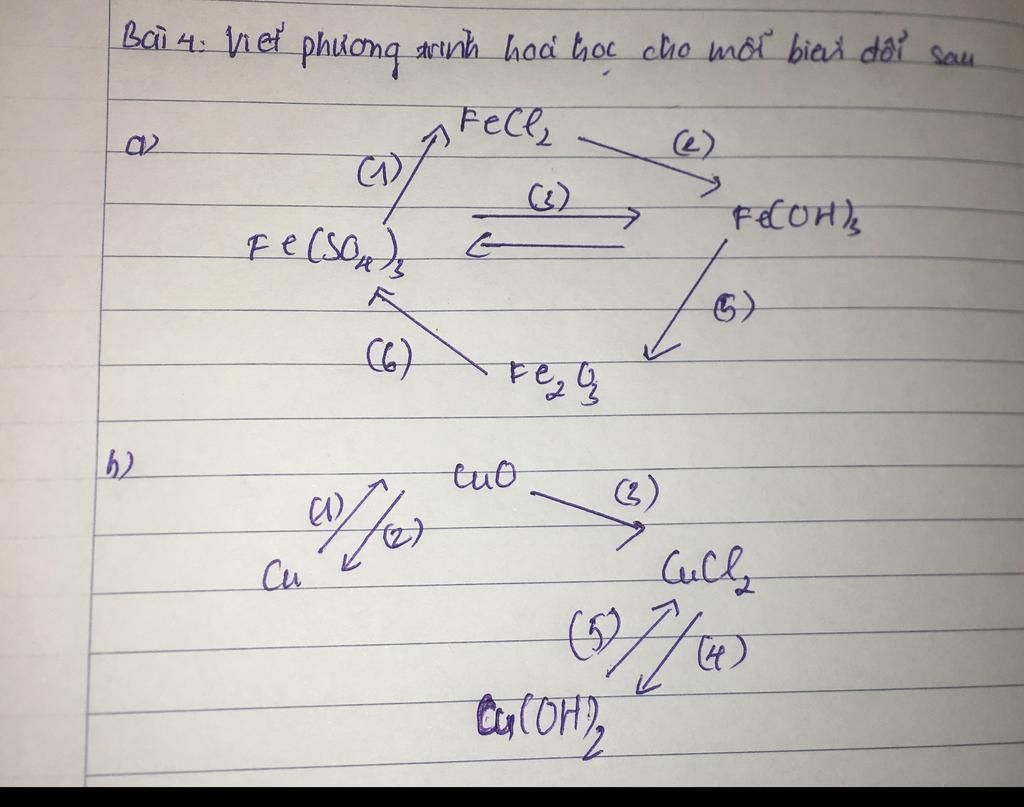 Bài 4: Viết phương trình hoá học cho mỗi biến đổi sau
a)
FeCl2
(1)
(2)
(3)
Fe(OH)3
Fe(SO4)3
(5)
(6)
Fe2O3
b)
CuO
(1)
(2)
(3)
Cu
CuCl2
(5)
(4)
Cu(OH)2